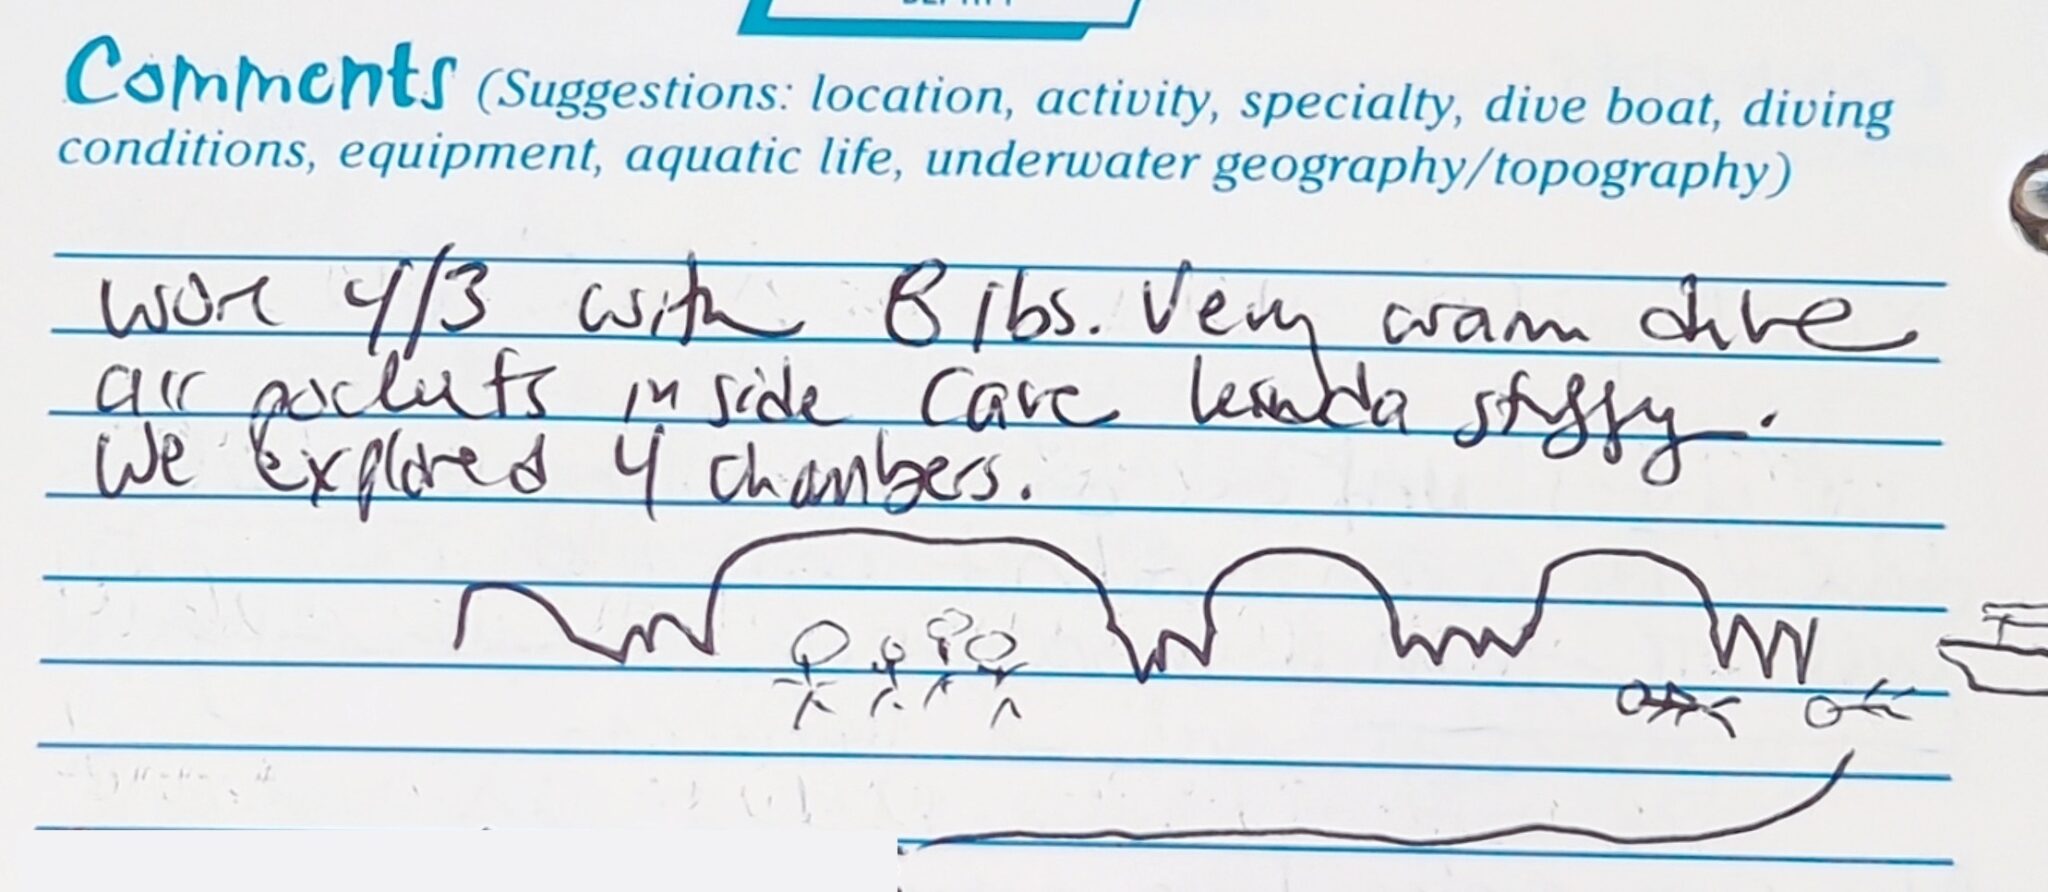 Comments (Suggestions: location, activity, specialty, dive boat, diving
conditions, equipment, aquatic life, underwater geography/topography)
wore 4/3 with 8 lbs. Very warm dive
air pockets inside cave kinda stuffy.
We explored 4 chambers.